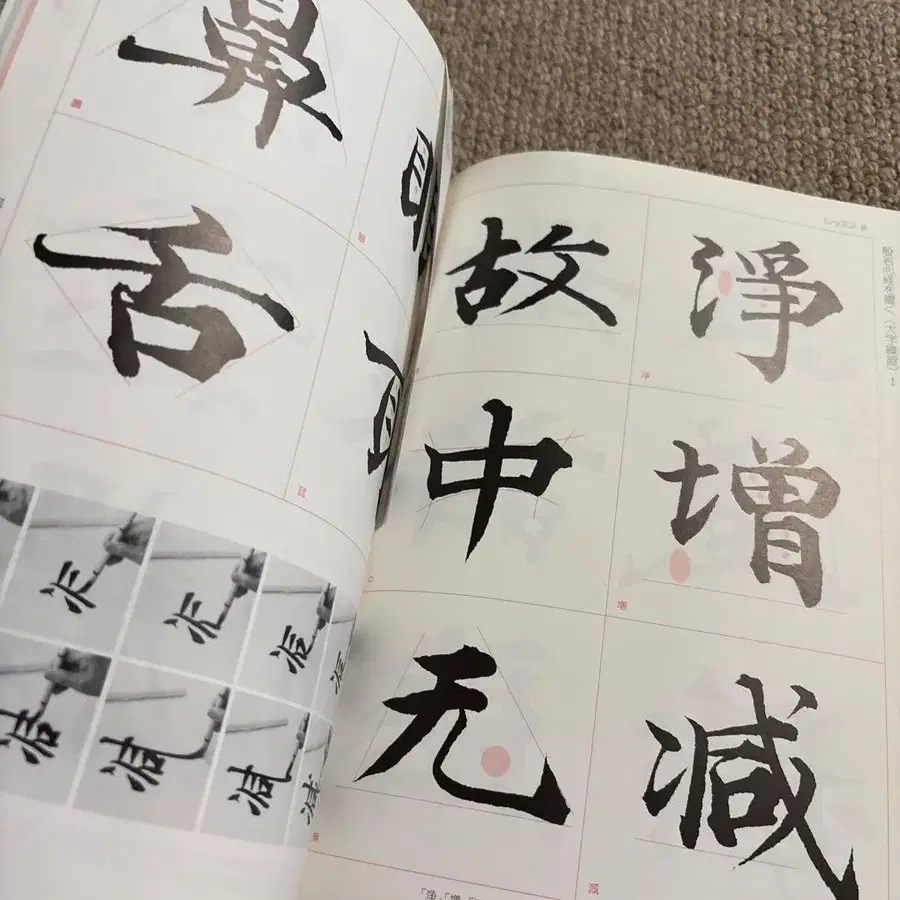 レッスン 6
般若心経を書く〈大字練習〉1
淨
淨
増
増
减
減
故
中
无
眼
耳
耳
鼻
舌